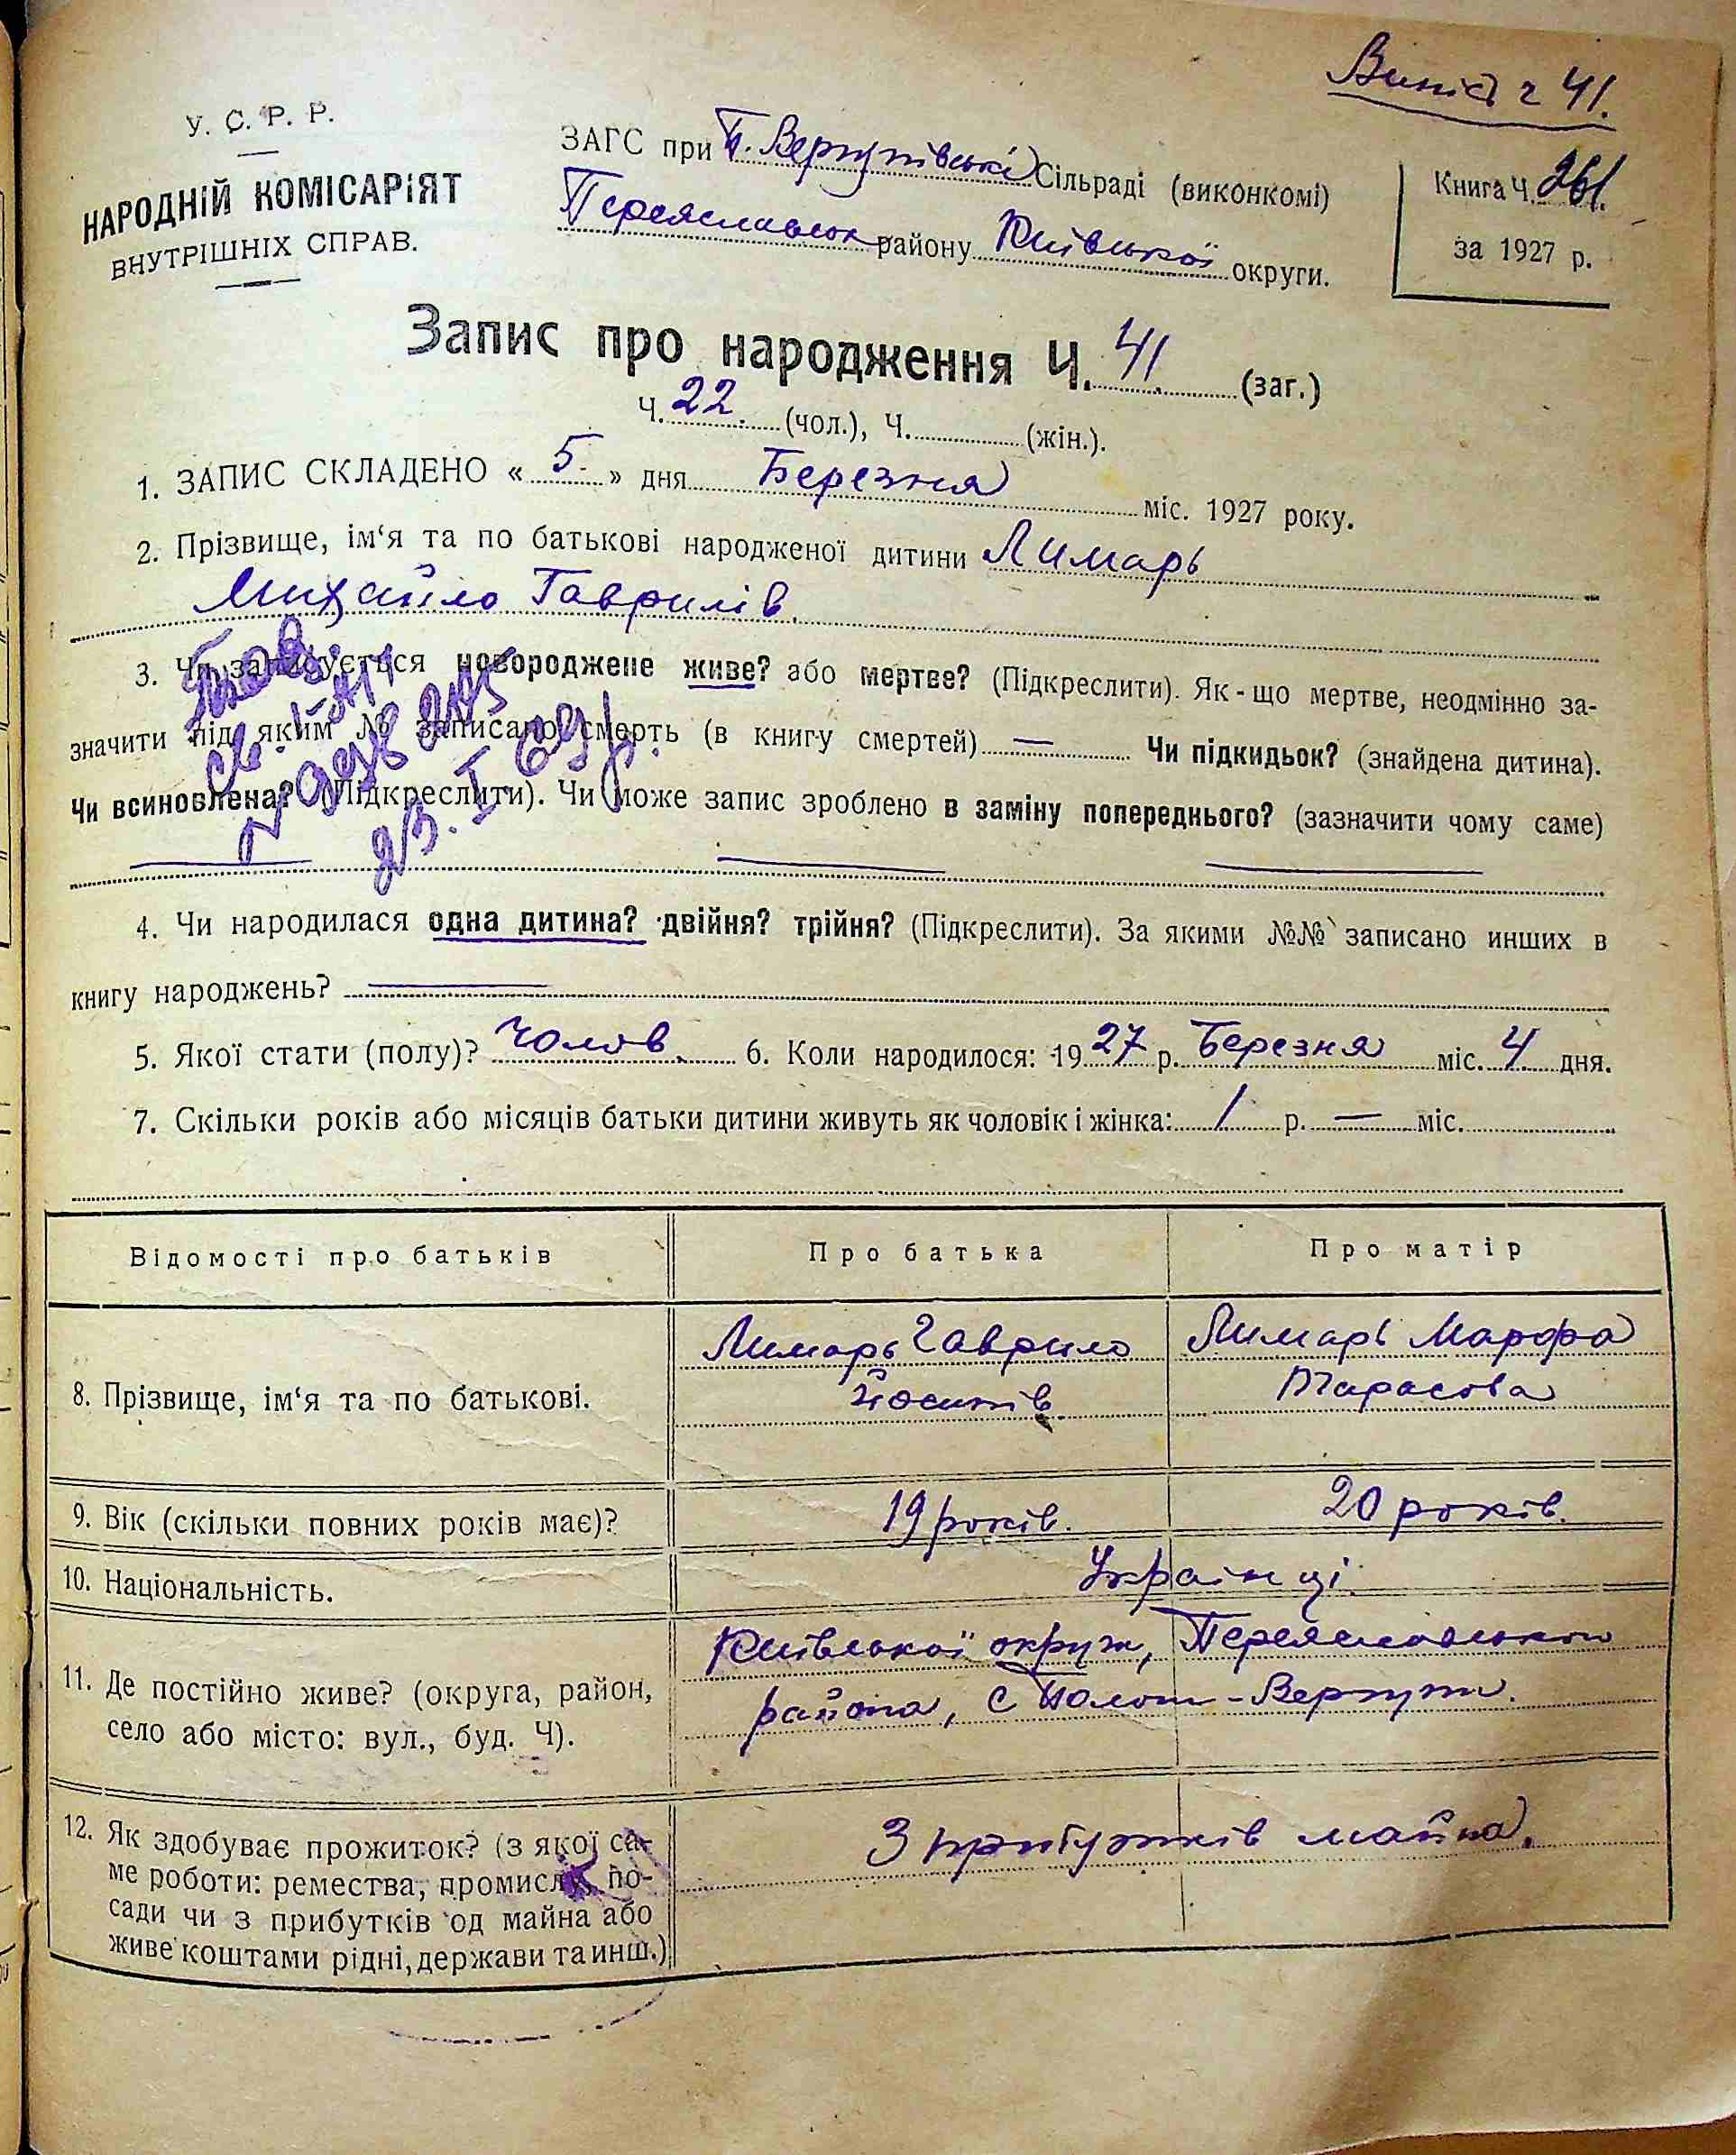 Виніс ч 41.
У. С. Р. Р.
НАРОДНІЙ КОМІСАРІЯТ
ВНУТРІШНІХ СПРАВ.
ЗАГС при П. Вергунівські Сільраді (виконкомі)
Переяславськ району Київської округи.
Книга Ч. 261.
за 1927 р.
Запис про народження Ч. 41. (заг.)
Ч. 22. (чол.), Ч. (жін.).
1. ЗАПИС СКЛАДЕНО « 5. » дня Березня міс. 1927 року.
2. Прізвище, ім‘я та по батькові народженої дитини Лимарь
Михайло Гаврилів.
3. Чи записується новороджене живе? або мертве? (Підкреслити). Як-що мертве, неодмінно за-
значити під яким № записано смерть (в книгу смертей) — Чи підкидьок? (знайдена дитина).
Чи всиновлена? (Підкреслити). Чи може запис зроблено в заміну попереднього? (зазначити чому саме)
4. Чи народилася одна дитина? двійня? трійня? (Підкреслити). За якими №№ записано инших в
книгу народжень?
5. Якої стати (полу)? Чолов. 6. Коли народилося: 1927 р. Березня міс. 4 дня.
7. Скільки років або місяців батьки дитини живуть як чоловік і жінка: 1 р. — міс.
Відомості про батьків Про батька Про матір
8. Прізвище, ім‘я та по батькові.
Лимарь Гаврило
Йосипів.
Лимарь Марфа
Тарасова
9. Вік (скільки повних років має)? 19 років. 20 років.
10. Національність. Українці.
11. Де постійно живе? (округа, район,
село або місто: вул., буд. Ч).
Київської округи, Переяславського
района, с Полог-Вергуни.
12. Як здобуває прожиток? (з якої са-
ме роботи: ремества, промислу, по-
сади чи з прибутків од майна або
живе коштами рідні, держави та инш.)
З прибутків майна.